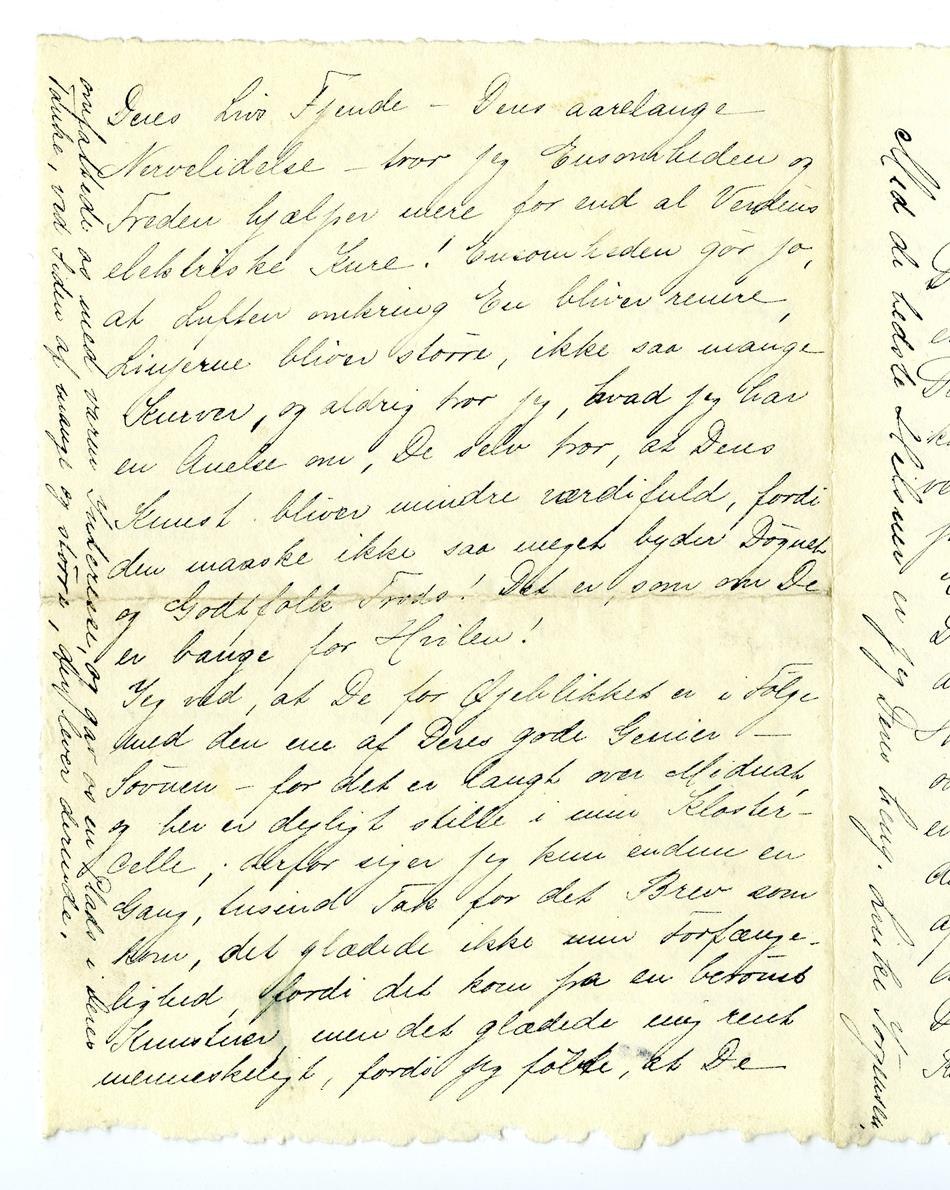 Deres Livs Fjende – Deres aarelange
Nervelidelse – tror jeg Ensomheden og
Freden hjælper mere for end al Verdens
elektriske Kure! Ensomheden gør jo,
at Luften omkring En bliver renere,
Linjerne bliver større, ikke saa mange
Kurver, og aldrig tror jeg, hvad jeg har
en Anelse om, De selv tror, at Deres
Kunst bliver mindre værdifuld, fordi
den maaske ikke saa meget byder Døgnet
og Godtfolk Trods! Det er, som om De
er bange for Hvilen!
Jeg ved, at De for Øjeblikket er i Følge
med den ene af Deres gode Genier –
Søvnen – for det er langt over Midnat,
og her er dejligt stille i min Kloster-
celle; derfor siger jeg kun endnu en
Gang, tusind Tak for det Brev som
kom, det glædede ikke min Forfænge-
lighed, fordi det kom fra en berømt
Kunstner, men det glædede mig rent
menneskeligt, fordi jeg følte, at De
omfattede os med varm Interesse, og gav os en Plads i Deres
Tanke, ved Siden af meget og større, der lever derinde.
Med de bedste Hilsner er jeg Deres heng.